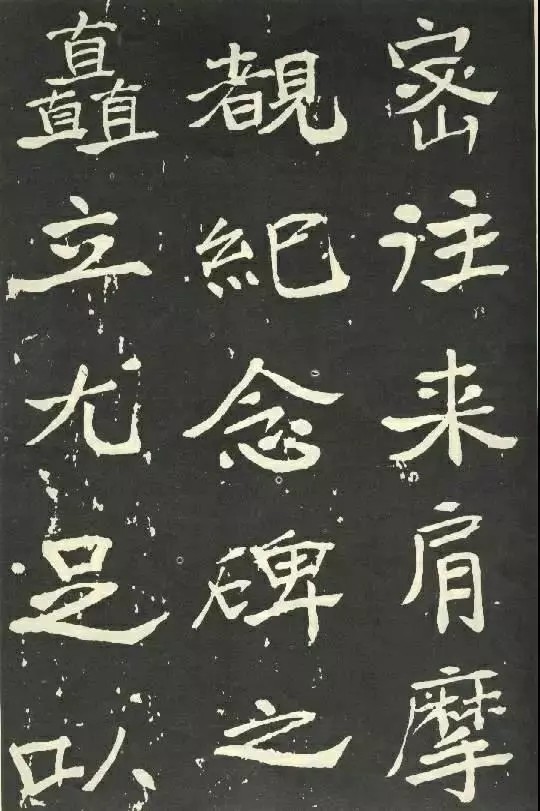 密往来肩摩
覩纪念碑之
矗立尤足以